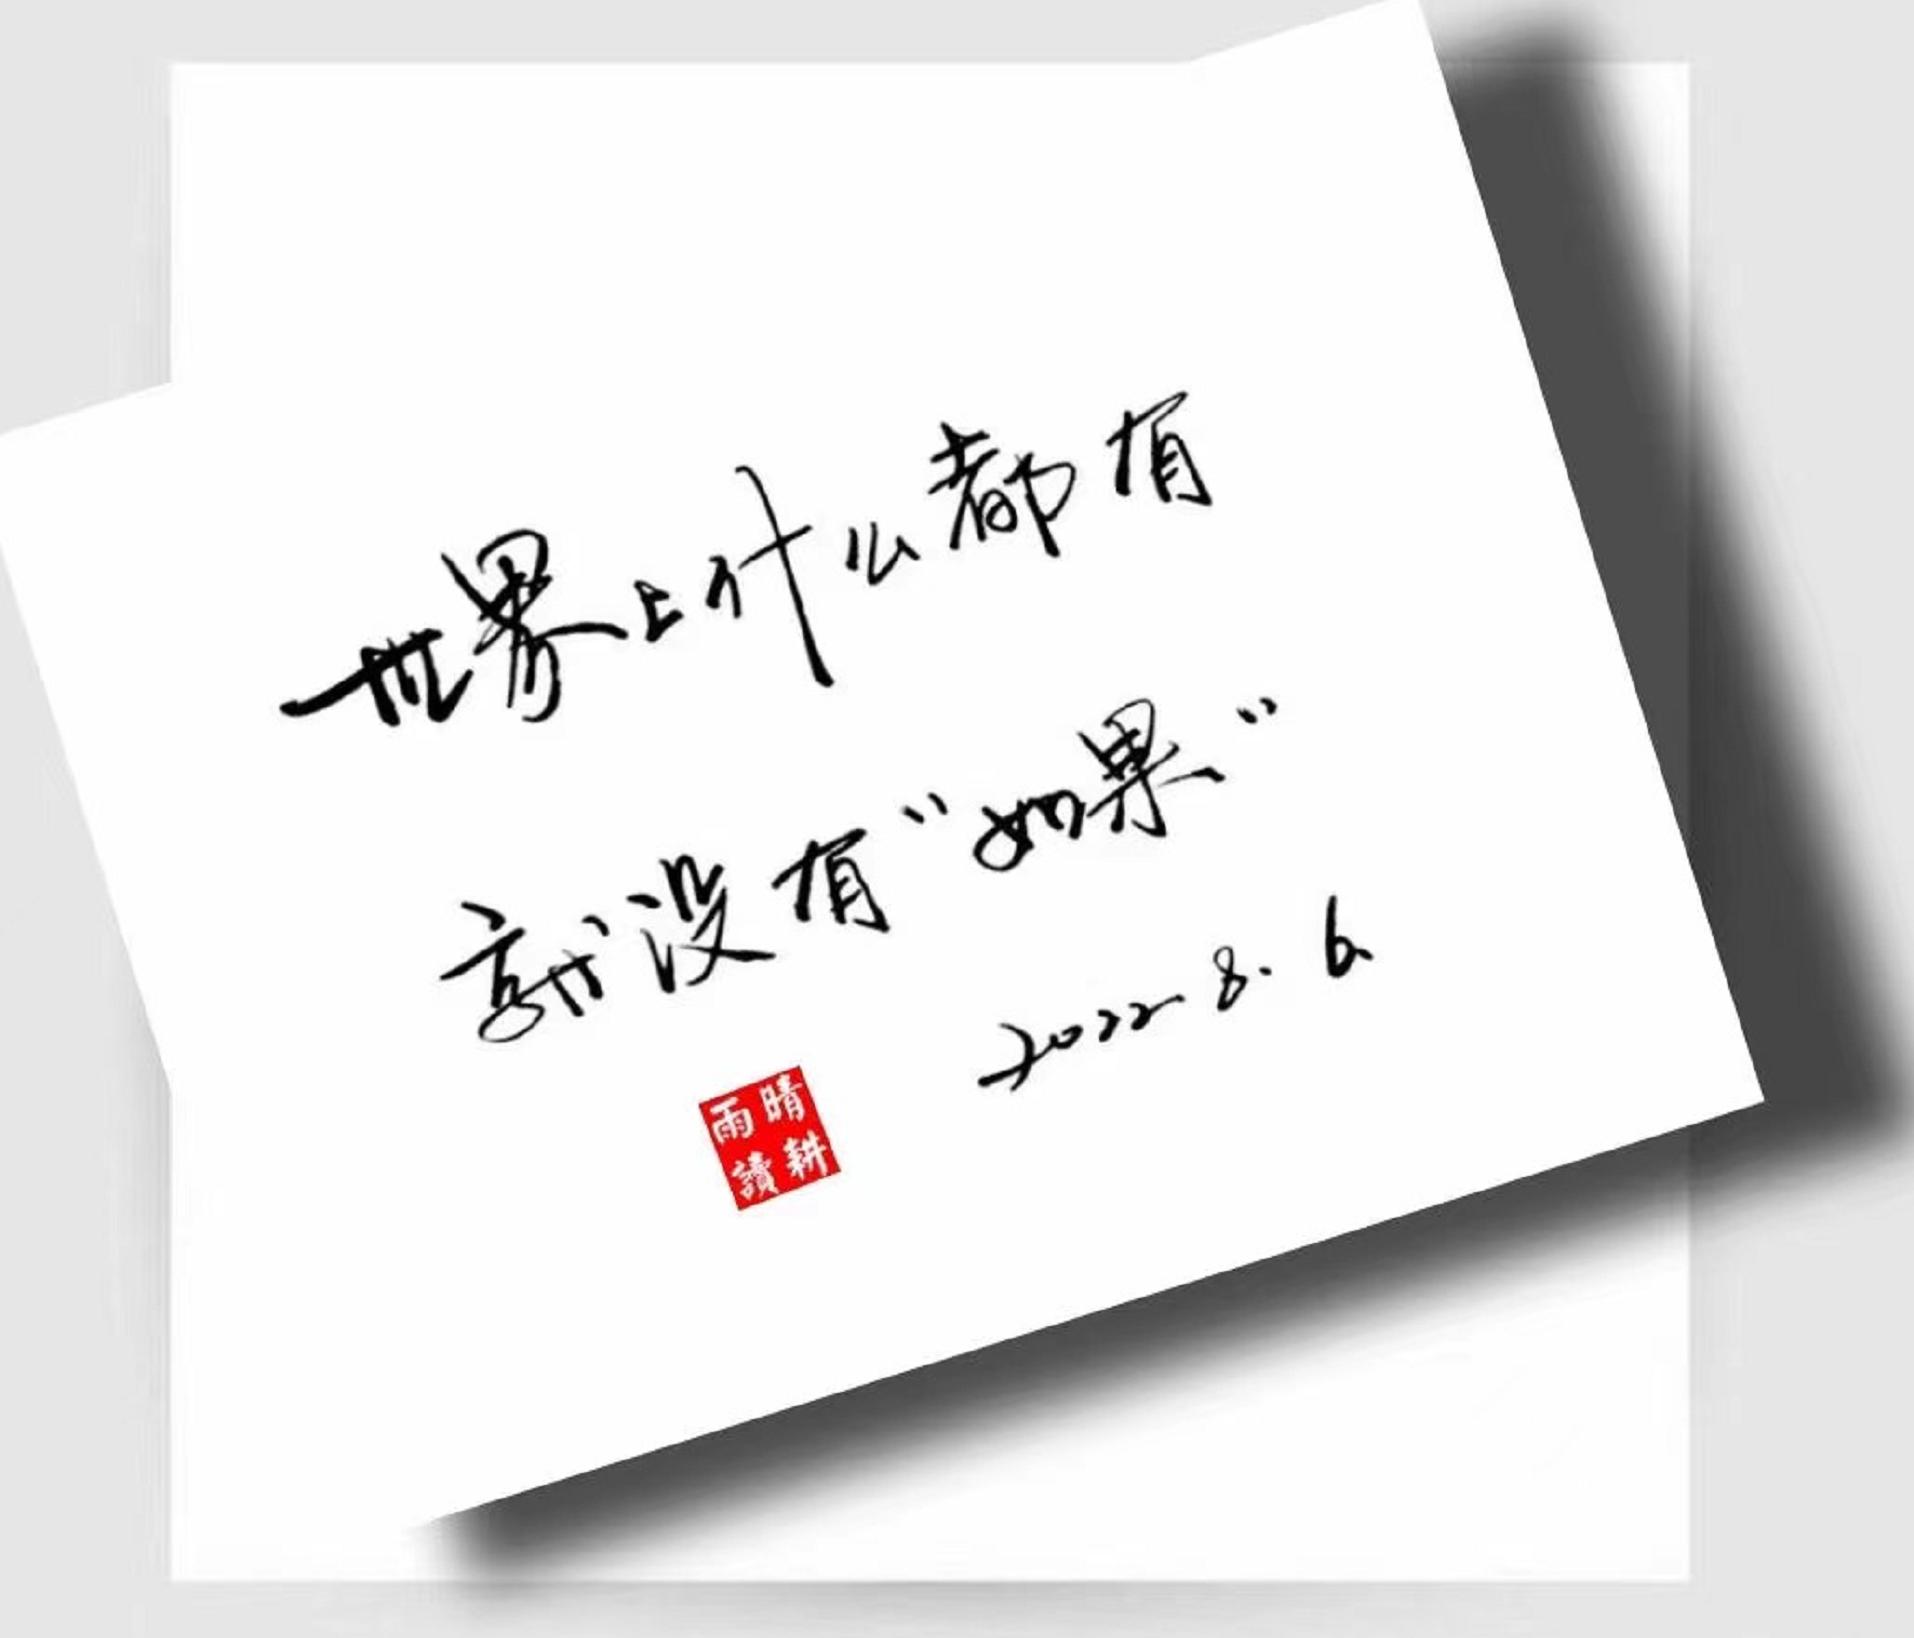 世界上什么都有
就没有“如果”
2022.8.6
晴耕
雨讀